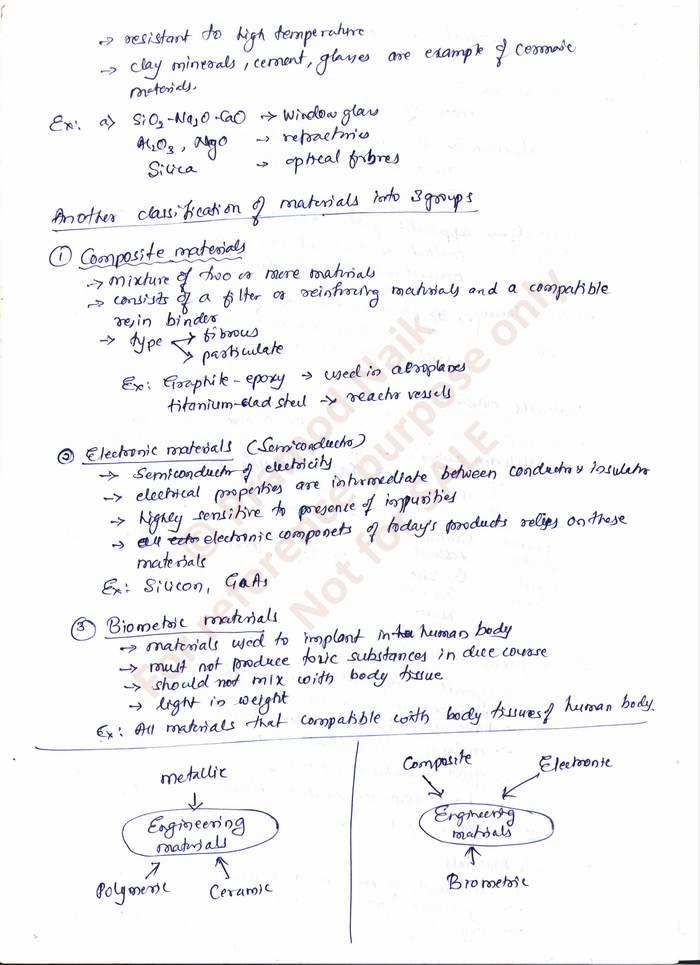 → resistant to high temperature
→ clay minerals, cement, glasses are example of cermaic
materials.
Ex: a) SiO2-Na2O-CaO → Window glass
Al2O3, MgO → refractrics
Silica → optical fibres
Another classification of materials into 3 groups
① Composite materials
→ mixture of two or more materials
→ consists of a filter or reinfrcing materials and a compatible
resin binder
→ type → fibrous
→ particulate
Ex: Graphite-epoxy → used in aeroplanes
titanium-clad steel → reactor vessels
② Electronic materials (Semiconductor)
→ Semiconductor of electricity
→ electrical properties are intermediate between conductor & insulator
→ highly sensitive to presence of impurities
→ electronic componets of today's products relies on these
materials
Ex: Silicon, GaAs
③ Biometric materials
→ materials used to implant in human body
→ must not produce toxic substances in dice course
→ should not mix with body tissue
→ light in weight
Ex: All materials that compatible with body tissues of human body.
metallic
Engineering
materials
Polymeric Ceramic
Composite Electronic
Engineering
matrials
Biometric
© Pramod Naik
For reference purpose only
Not for SALE